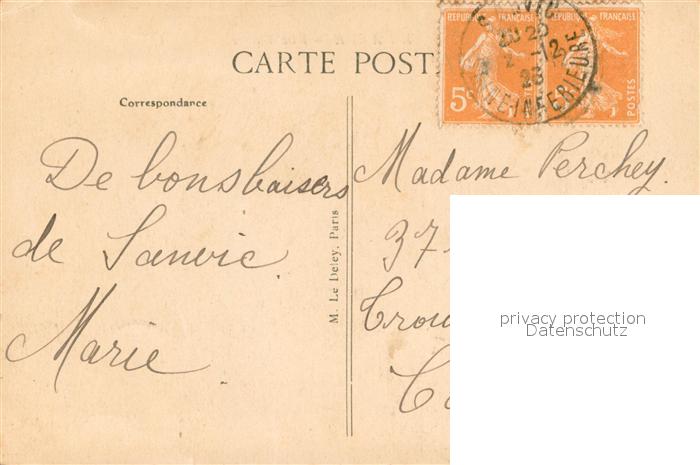 CARTE POST
RÉPUBLIQUE FRANÇAISE
RÉPUBLIQUE FRANÇAISE
5c
POSTES
2 -12
23
INFERIEURE
Correspondance
De bons baisers
de Sanvic
Marie
M. Le Deley, Paris
Madame Perchey.
37
Trou
privacy protection
Datenschutz